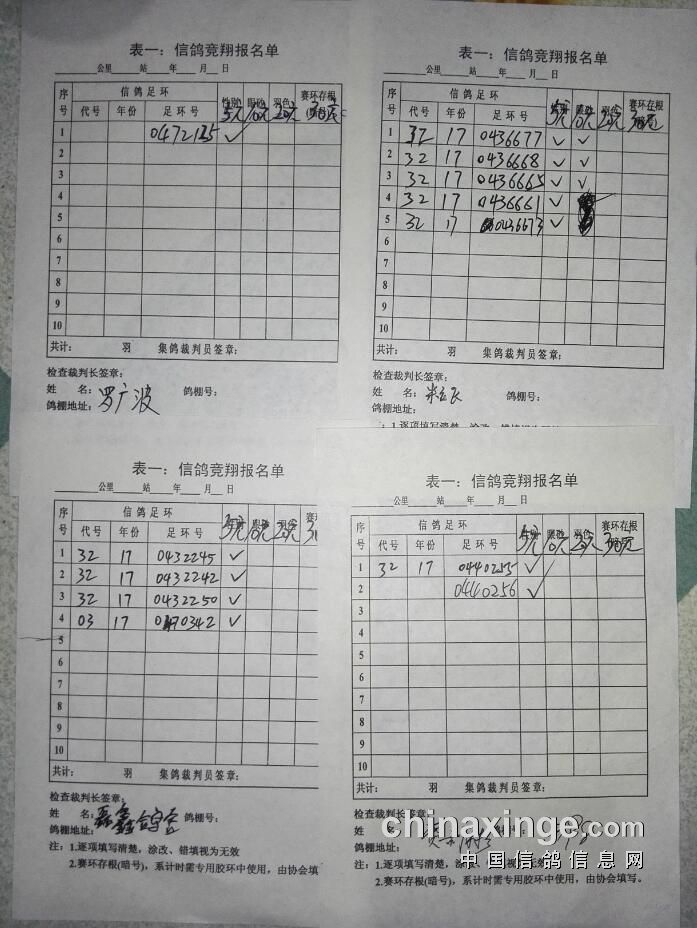 表一：信鸽竞翔报名单
公里 站 年 月 日
序号 信鸽足环 性别 眼砂 羽色 赛环存根
代号 年份 足环号 5元 10元 20元 30元
1 0472135 ✓
2
3
4
5
6
7
8
9
10
共计： 羽 集鸽裁判员签章：
检查裁判长签章：
姓 名：罗广波 鸽棚号：
鸽棚地址：
表一：信鸽竞翔报名单
公里 站 年 月 日
序号 信鸽足环 赛环存根
代号 年份 足环号 5元 10元 20元 30元
1 32 17 0436677 ✓ ✓
2 32 17 0436668 ✓ ✓
3 32 17 0436665 ✓ ✓
4 32 17 0436661 ✓
5 32 17 0436673 ✓
6
7
8
9
10
共计： 羽 集鸽裁判员签章：
检查裁判长签章：
姓 名： 鸽棚号：
鸽棚地址：
表一：信鸽竞翔报名单
公里 站 年 月 日
序号 信鸽足环 赛环
代号 年份 足环号 5元 10元 20元
1 32 17 0432245 ✓
2 32 17 0432242 ✓
3 32 17 0432250 ✓
4 03 17 0170342 ✓
5
6
7
8
9
10
共计： 羽 集鸽裁判员签章：
检查裁判长签章：
姓 名：磊鑫鸽舍 鸽棚号：
鸽棚地址：
注：1.逐项填写清楚，涂改、错填视为无效
2.赛环存根(暗号)，系计时需专用胶环中使用，由协会填
表一：信鸽竞翔报名单
公里 站 年 月 日
序号 信鸽足环 赛环存根
代号 年份 足环号 5元 10元 20元
1 32 17 0440255 ✓
2 0440256 ✓
3
4
5
6
7
8
9
10
共计： 羽 集鸽裁判员签章：
检查裁判长签章：
姓
鸽棚地址：
注：1.逐项填写清楚，涂改、错填视为无效
2.赛环存根(暗号)，系计时需专用胶环中使用，由协会填写。
chinaxinge.com
中国信鸽信息网